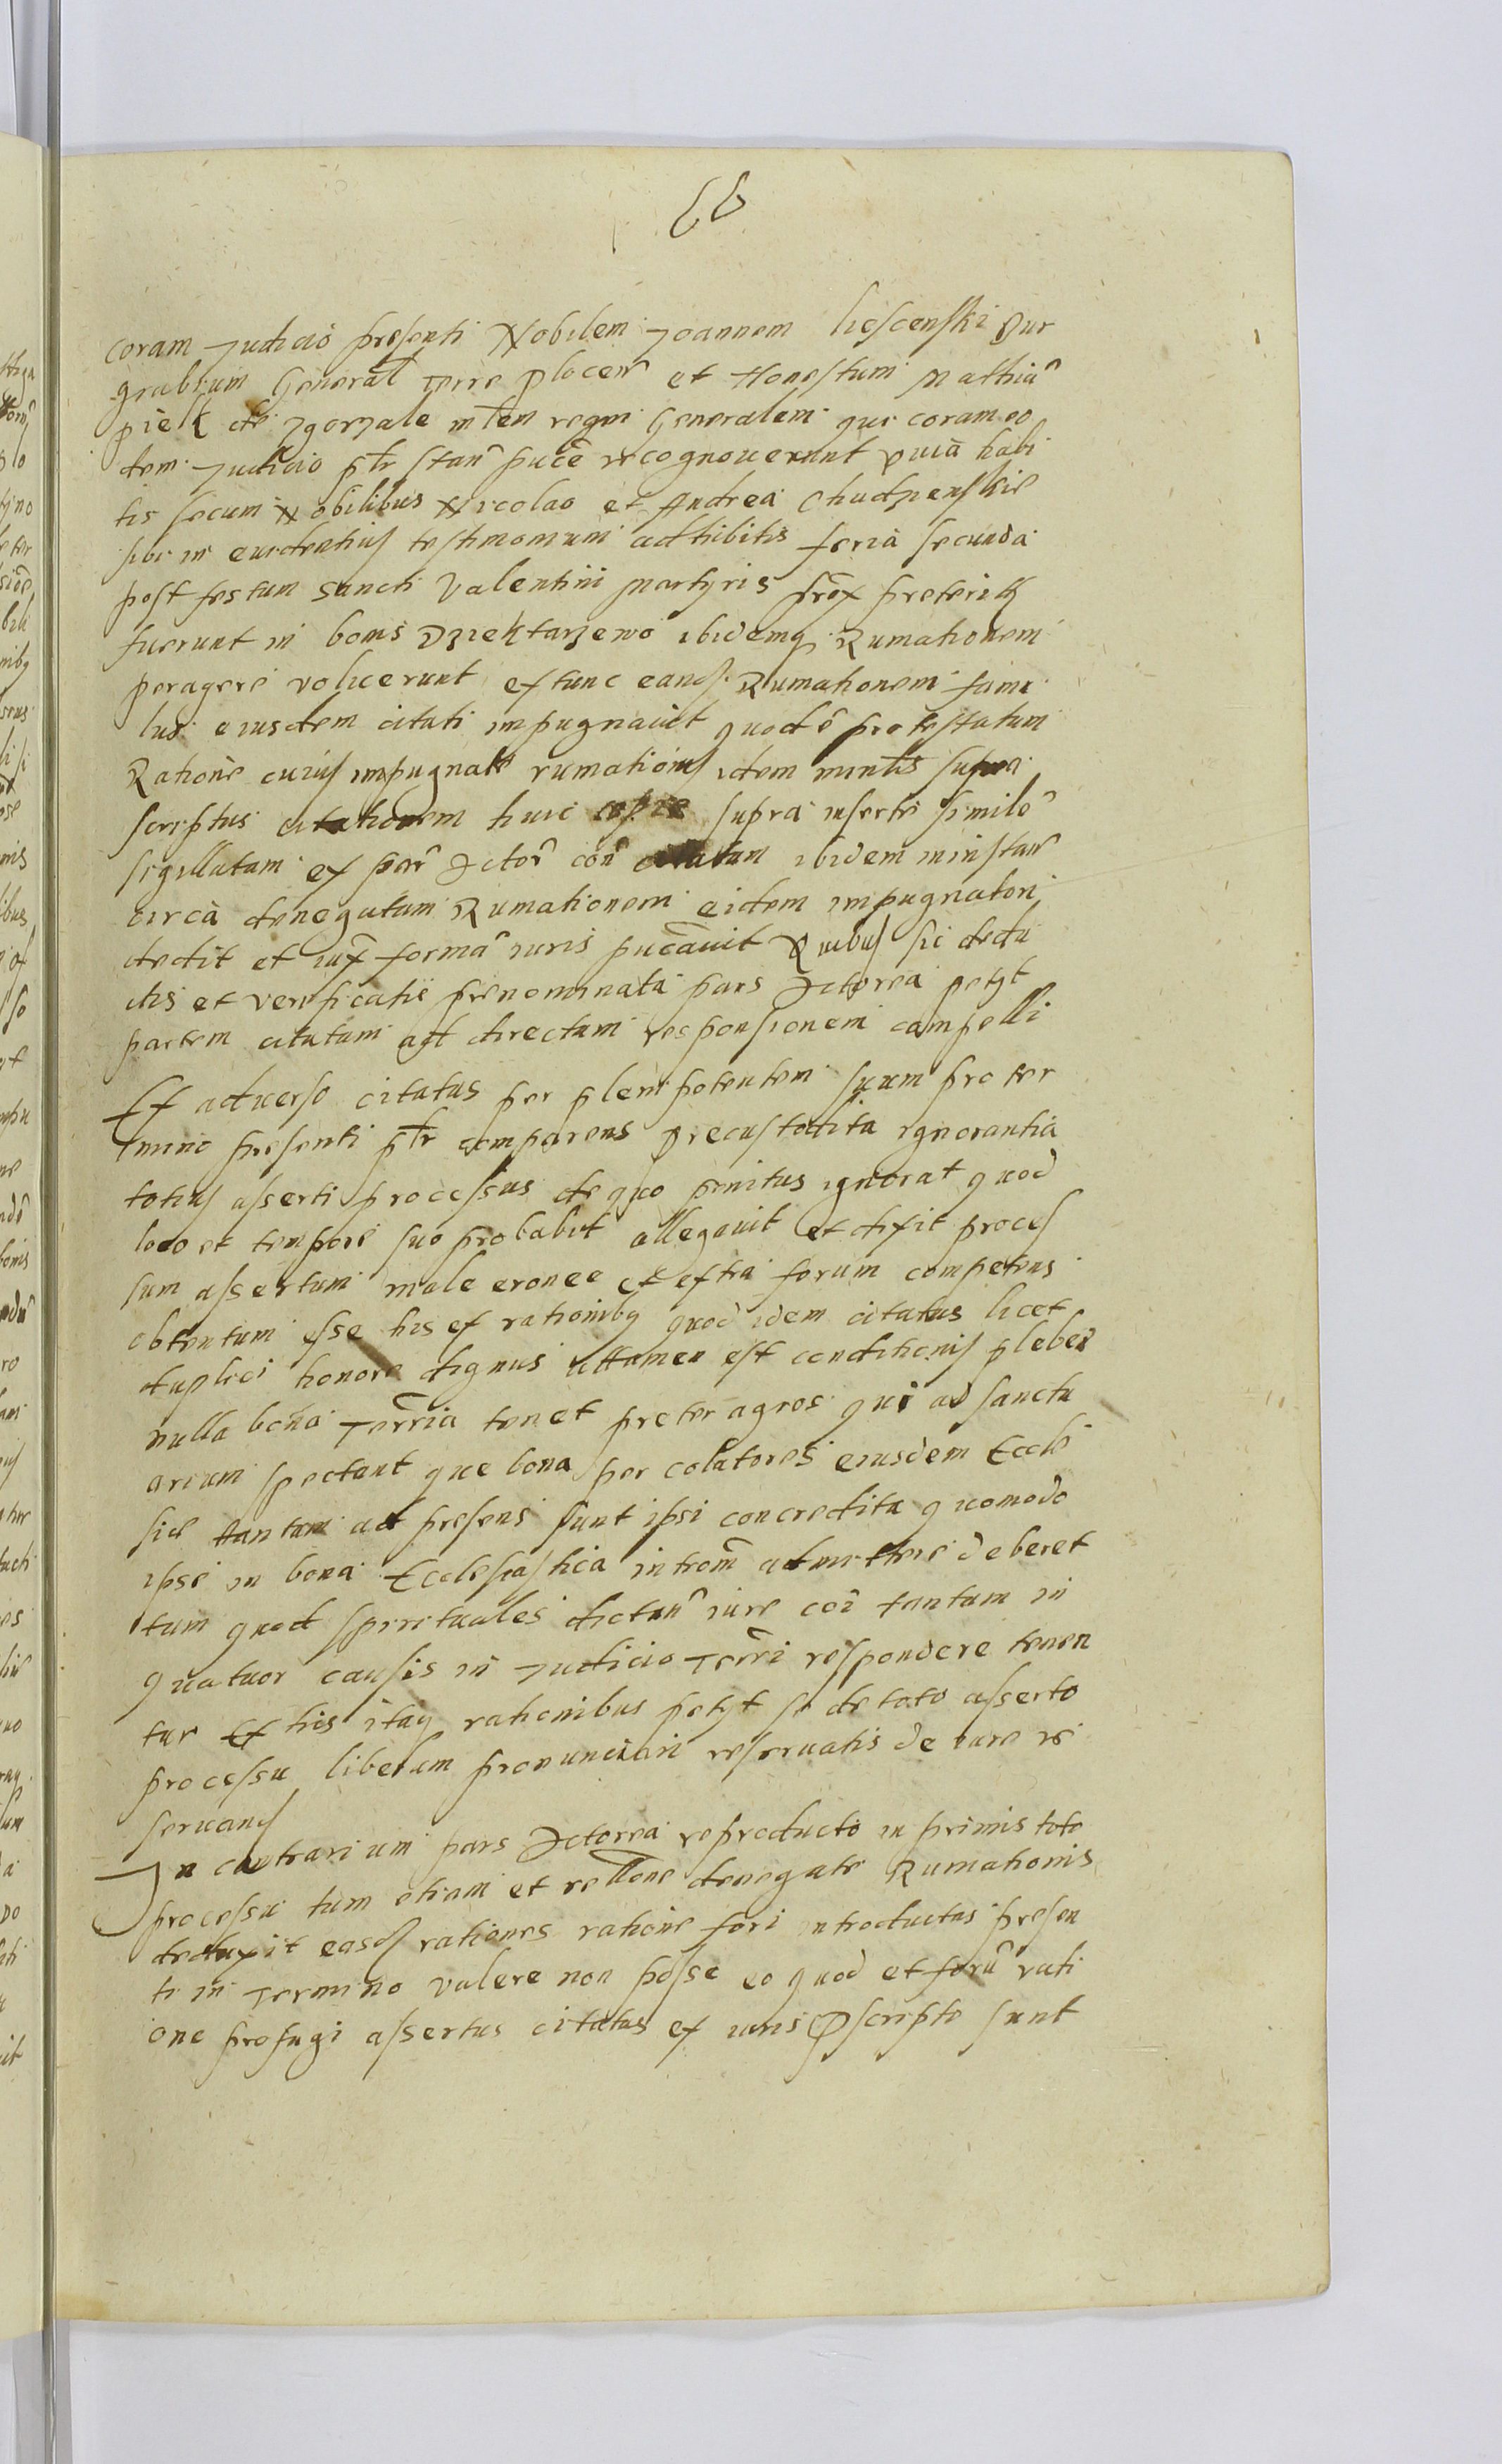 66
coram Judicio presenti Nobilem Joannem liescenski Bur
grabium General Terre plocen et Honestum Mathia
pielk de zgorzale mlem regni Generalem qui coram eo
dem Judicio ptr stan puce recognouerunt quia habi
tis secum Nobilibus Nicolao et Andrea Chudzienskie
sibi in euidentius testimonium adhibitis feria secunda
post festum sancti Valentini Martyris prox preterit
fuerunt in bonis Dziektarzewo ibidemq Rumationem
peragere voluerunt extunc eand Rumationem fami
lus eiusdem citati impugnauit quod e protestatum
Ratione cuius impugnate rumationis idem minlis supra
scriptus citationem huic copie supra inserte simile
sigillatam ex par Actor con citatum ibidem in instan
circa denegatam Rumationem eidem impugnatori
dedit et iux forma iuris pucauit Quibus sic dedu
ctis et verificatis prenominata pars Actorea petyt
partem citatam ad directam responsionem compelli
Ex aduerso citatus per plenipotentem suum pro ter
mino presenti ptr comparens precustodita ignorantia
totius asserti processus de quo penitus ignorat quod
loco et tempore suo probabit allegauit et dixit proces
sum assertum male eronee et extra forum competens
obtentum esse his ex rationibq quod idem citatus licet
duplici honore dignus attamen est conditionis plebei
nulla bona Terria tenet preter agros qui ad sanctu
arium spectant que bona per colatores eiusdem Eccle
sie tantum ad presens sunt ipsi concredita quomodo
ipse in bona Ecclesiastica introm admittere deberet
tum quod spirituales dictan iure coi tantum in
quatuor causis in Judicio Terri respondere tenen
tur Ex his itaq rationibus petyt se de toto asserto
processu liberum pronunciari reseruatis de iure re
seruand
In contrarium pars Actorea reproducto in primis toto
processu tum etiam et rellone denegate Rumationis
deduxit easd rationes ratione fori introductas presen
ti in Termino valere non posse eo quod et foru rati
one profugi assertus citatus ex iuris pscripto sunt